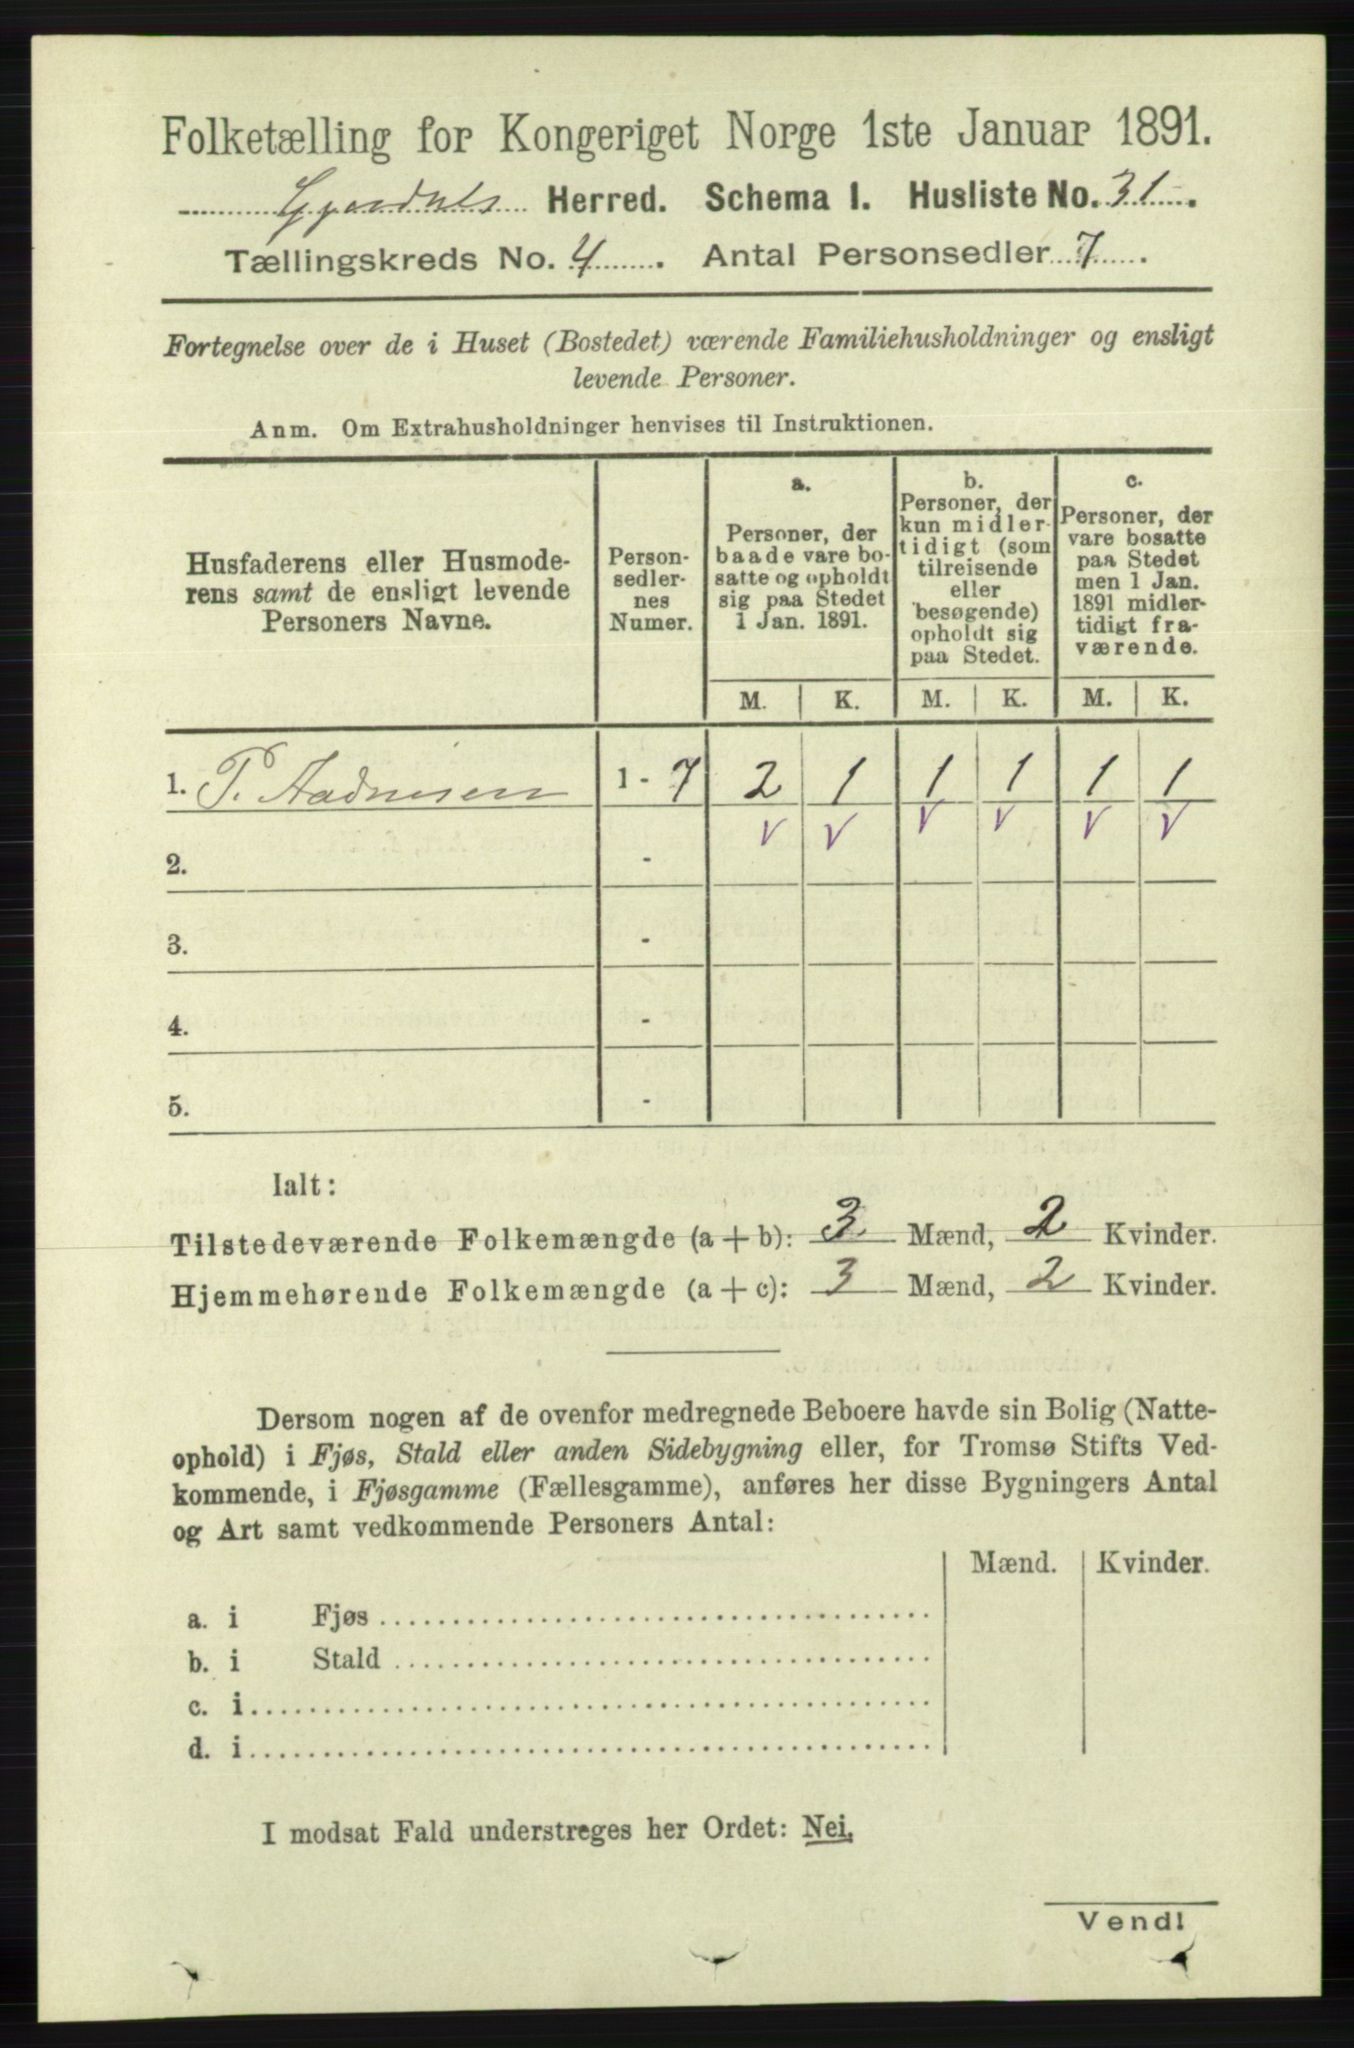 Folketælling for Kongeriget Norge 1ste Januar 1891.
Gjesdals Herred. Schema I. Husliste No. 31.
Tællingskreds No. 4. Antal Personsedler 7.
Fortegnelse over de i Huset (Bostedet) værende Familiehusholdninger og ensligt
levende Personer.
Anm. Om Extrahusholdninger henvises til Instruktionen.
Husfaderens eller Husmode-
rens samt de ensligt levende
Personers Navne.
Person-
sedler-
nes
Numer.
a.
Personer, der
baade vare bo-
satte og opholdt
sig paa Stedet
1 Jan. 1891.
b.
Personer, der
kun midler-
tidigt (som
tilreisende
eller
besøgende)
opholdt sig
paa Stedet.
c.
Personer, der
vare bosatte
paa Stedet
men 1 Jan.
1891 midler-
tidigt fra-
værende.
M. K. M. K. M. K.
1. P. Aadnesen 1 - 7 2 1 1 1 1 1
v v v v v v
2. -
3. -
4. -
5. -
Ialt:
Tilstedeværende Folkemængde (a + b): 3 Mænd, 2 Kvinder.
Hjemmehørende Folkemængde (a + c): 3 Mænd, 2 Kvinder.
Dersom nogen af de ovenfor medregnede Beboere havde sin Bolig (Natte-
ophold) i Fjøs, Stald eller anden Sidebygning eller, for Tromsø Stifts Ved-
kommende, i Fjøsgamme (Fællesgamme), anføres her disse Bygningers Antal
og Art samt vedkommende Personers Antal:
Mænd. Kvinder.
a. i Fjøs
b. i Stald
c. i
d. i
I modsat Fald understreges her Ordet: Nei.
Vend!